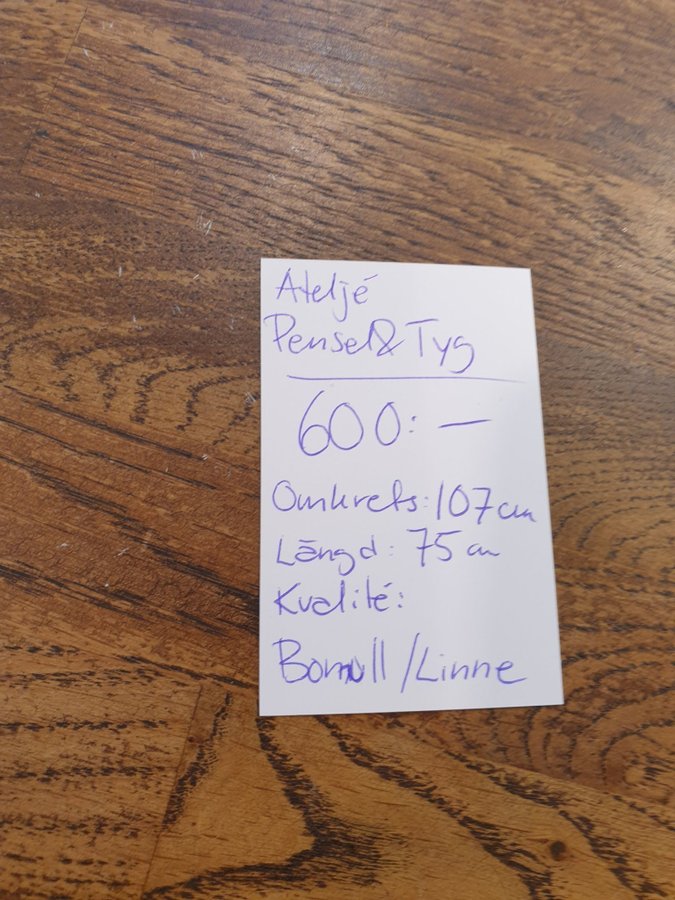 Ateljé
Pensel & Tyg
600:—
Omkrets: 107 cm
Längd: 75 cm
Kvalité:
Bomull/Linne